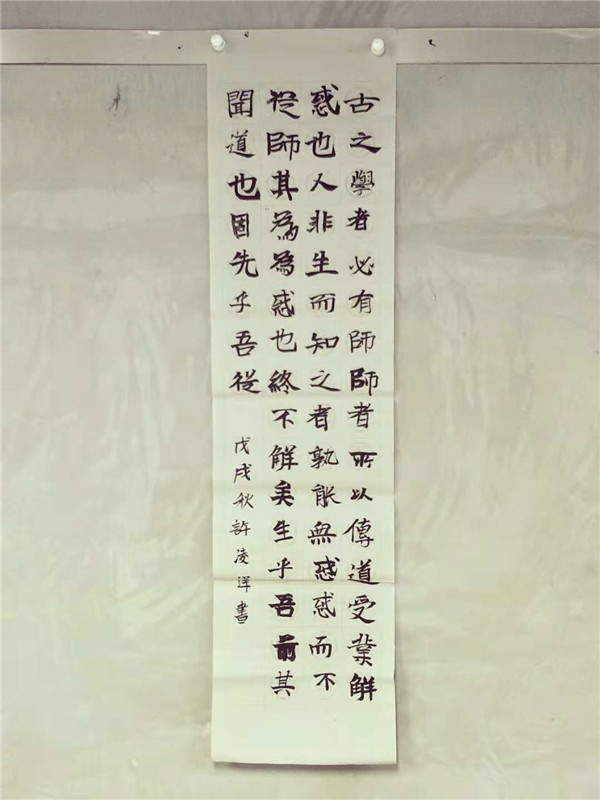 古之學者必有師師者所以傳道受業解
惑也人非生而知之者孰能無惑惑而不
從師其為為惑也終不解矣生乎吾前其
聞道也固先乎吾從
戊戌秋許凌洋書